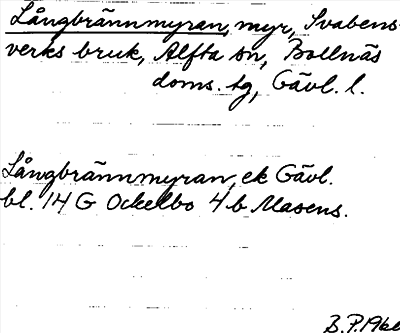 Långbrännmyran, myr, Svabens-
verks bruk, Alfta sn, Bollnäs
doms. tg, Gävl. l.
Långbrännmyran, ek Gävl.
bl. 14 G Ockelbo 4 b Masens.
B. P. 1966